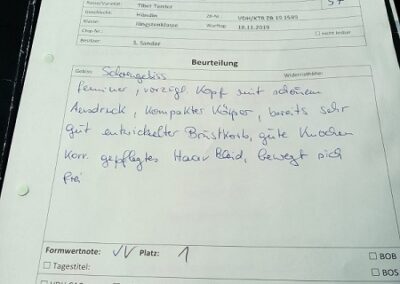 Rasse/Varietät: Tibet Terrier
Geschlecht: Hündin ZB-Nr.: VDH/KTR ZB 19 1589
Klasse: Jüngstenklasse Wurftag: 18.11.2019
Chip-Nr.: ☐ nicht lesbar
Besitzer: S. Sander
Beurteilung
Gebiss: Scherengebiss Widerristhöhe:
feminin, vorzügl. Kopf mit schönem
Ausdruck, kompakter Körper, bereits sehr
gut entwickelter Brustkorb, gute Knochen
korr. gepflegtes Haarkleid, bewegt sich
frei
Formwertnote: VV Platz: 1 ☐ BOB
☐ Tagestitel: ☐ BOS